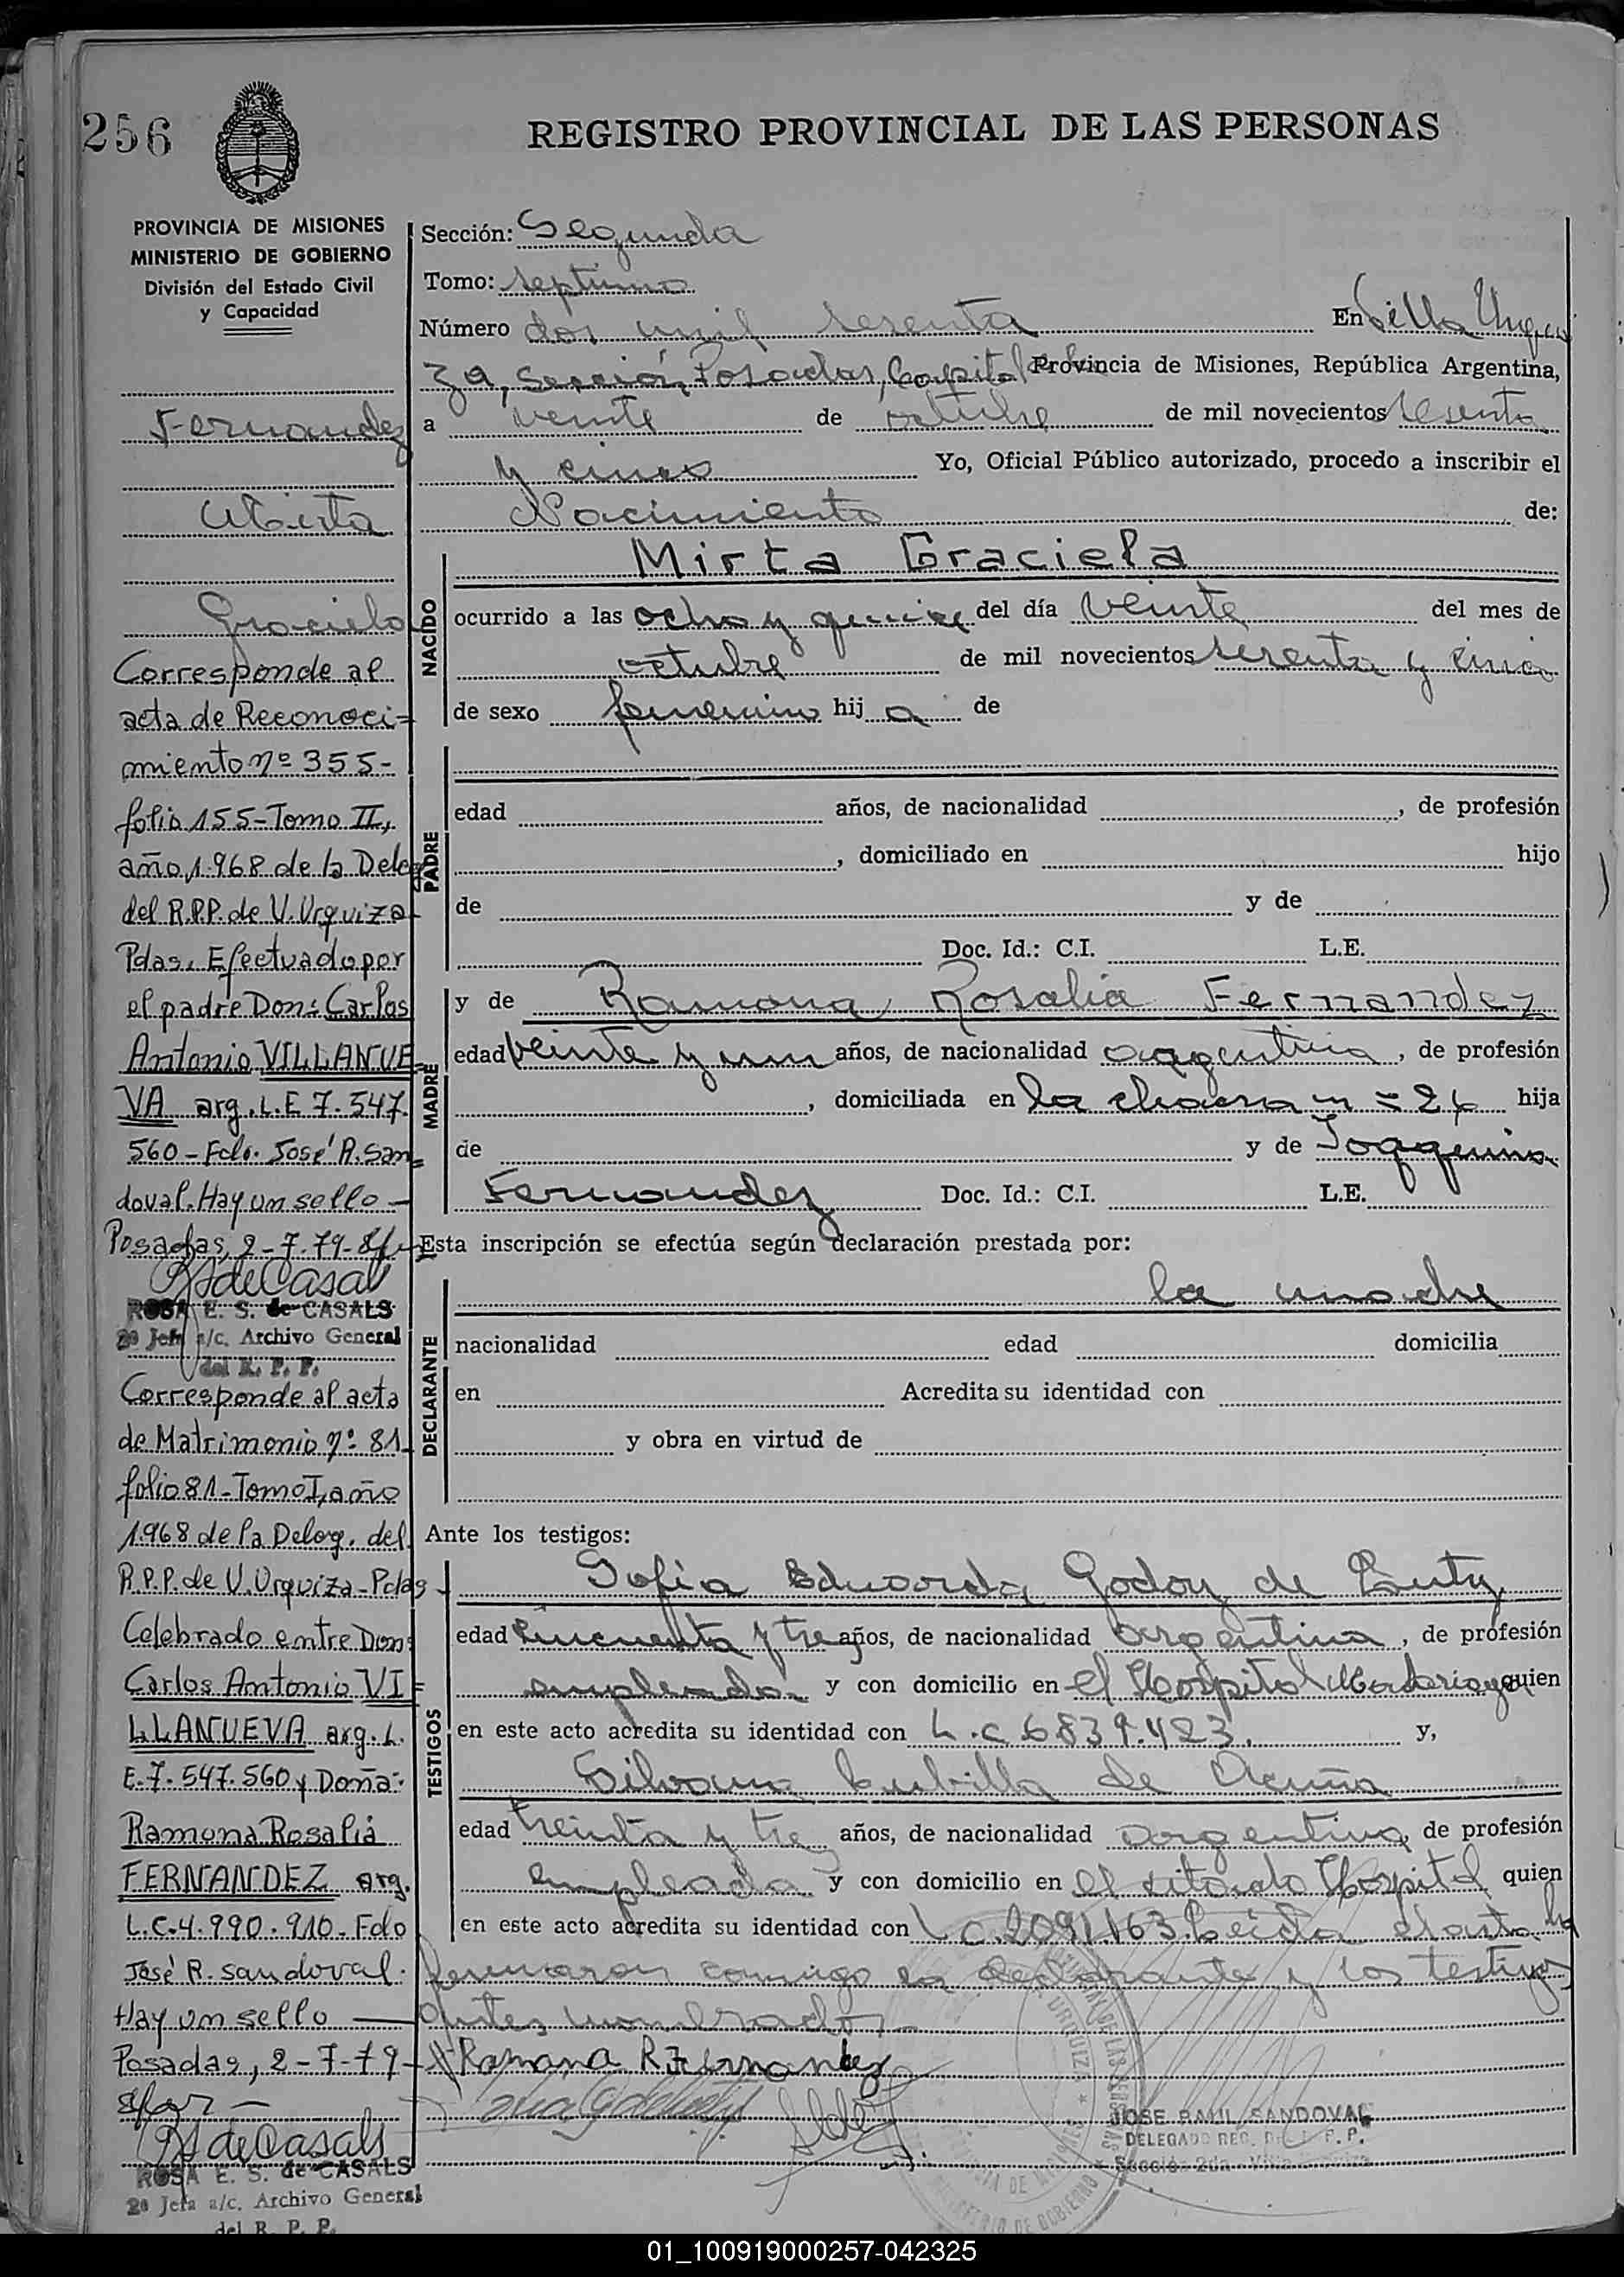 256
REGISTRO PROVINCIAL DE LAS PERSONAS
PROVINCIA DE MISIONES
MINISTERIO DE GOBIERNO
División del Estado Civil
y Capacidad
Fernandez
Mirta
Graciela
Corresponde al
acta de Reconoci=
miento nº 355-
folio 155-Tomo II,
año 1.968 de la Deleg
del R.P.P. de V. Urquiza
Pdas. Efectuado por
el padre Don: Carlos
Antonio VILLANUE=
VA arg. L.E 7.547.
560-Fdo. José R. San=
doval. Hay un sello-
Posadas, 2-7-79-
ROSA E. S. de CASALS
2ª Jefa a/c. Archivo General
del R. P. P.
Corresponde al acta
de Matrimonio nº 81
folio 81-Tomo I, año
1.968 de la Deleg. del
R.P.P. de V. Urquiza-Pdas-
Celebrado entre Don:
Carlos Antonio VI=
LLANUEVA arg. L.
E. 7.547.560 y Doña:
Ramona Rosalia
FERNANDEZ arg.
L.C. 4.990.910. Fdo
José R. Sandoval.
Hay un sello
Posadas, 2-7-79-
ROSA E. S. de CASALS
2ª Jefa a/c. Archivo General
del R. P. P.
Sección: Segunda
Tomo: septimo
Número dos mil sesenta En Villa Urqui
za, Sección, Posadas, Capital Provincia de Misiones, República Argentina,
a veinte de octubre de mil novecientos sesenta
y cinco Yo, Oficial Público autorizado, procedo a inscribir el
Nacimiento de:
NACIDO
Mirta Graciela
ocurrido a las ocho y quince del día veinte del mes de
octubre de mil novecientos sesenta y cinco
de sexo femenino hij a de
PADRE
edad años, de nacionalidad , de profesión
, domiciliado en hijo
de y de
Doc. Id.: C.I. L.E.
MADRE
y de Ramona Rosalia Fernandez
edad veinte y un años, de nacionalidad argentina, de profesión
, domiciliada en la chacra hija
de y de Joaquina
Fernandez Doc. Id.: C.I. L.E.
Esta inscripción se efectúa según declaración prestada por:
DECLARANTE
la madre
nacionalidad edad domicilia
en Acredita su identidad con
y obra en virtud de
Ante los testigos:
TESTIGOS
Sofia Eduarda Godoy de
edad cincuenta y tre años, de nacionalidad argentina, de profesión
empleada y con domicilio en el Hospital Madariaga quien
en este acto acredita su identidad con L.C 6839.423. y,
Silvana Cubilla de Acuña
edad treinta y tres años, de nacionalidad argentina, de profesión
empleada y con domicilio en el citado Hospital quien
en este acto acredita su identidad con L.C. 2091.163. Leida el acta la
firmaron conmigo la declarante y los testigos
antes nombrados
Ramona R Fernandez
JOSE RAUL SANDOVAL
DELEGADO REG. P. P.
Sección 2da. - Villa Urquiza
01_100919000257-042325